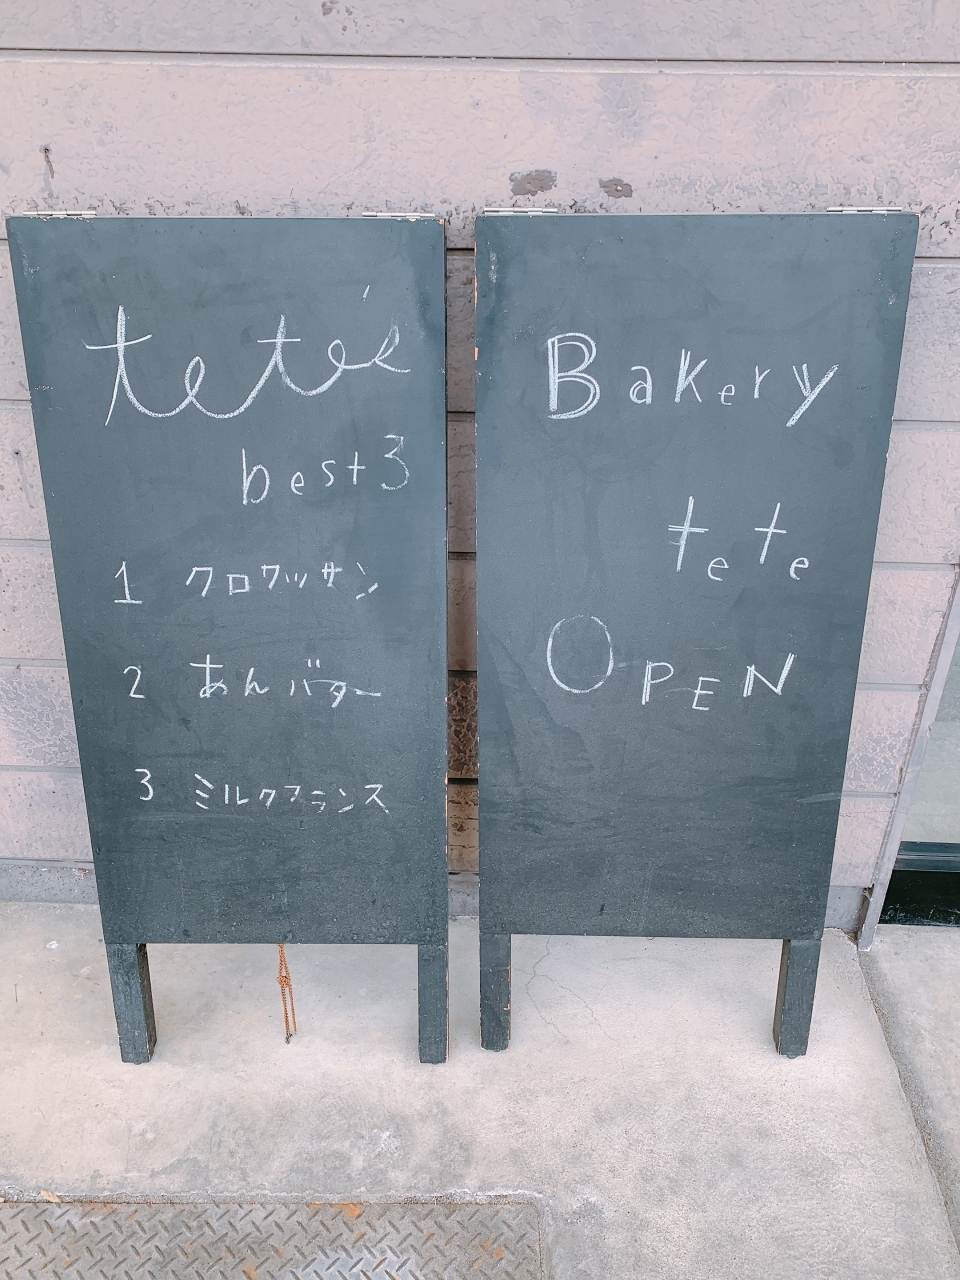 tete's
best 3
1 クロワッサン
2 あんバター
3 ミルクフランス
Bakery
tete
OPEN